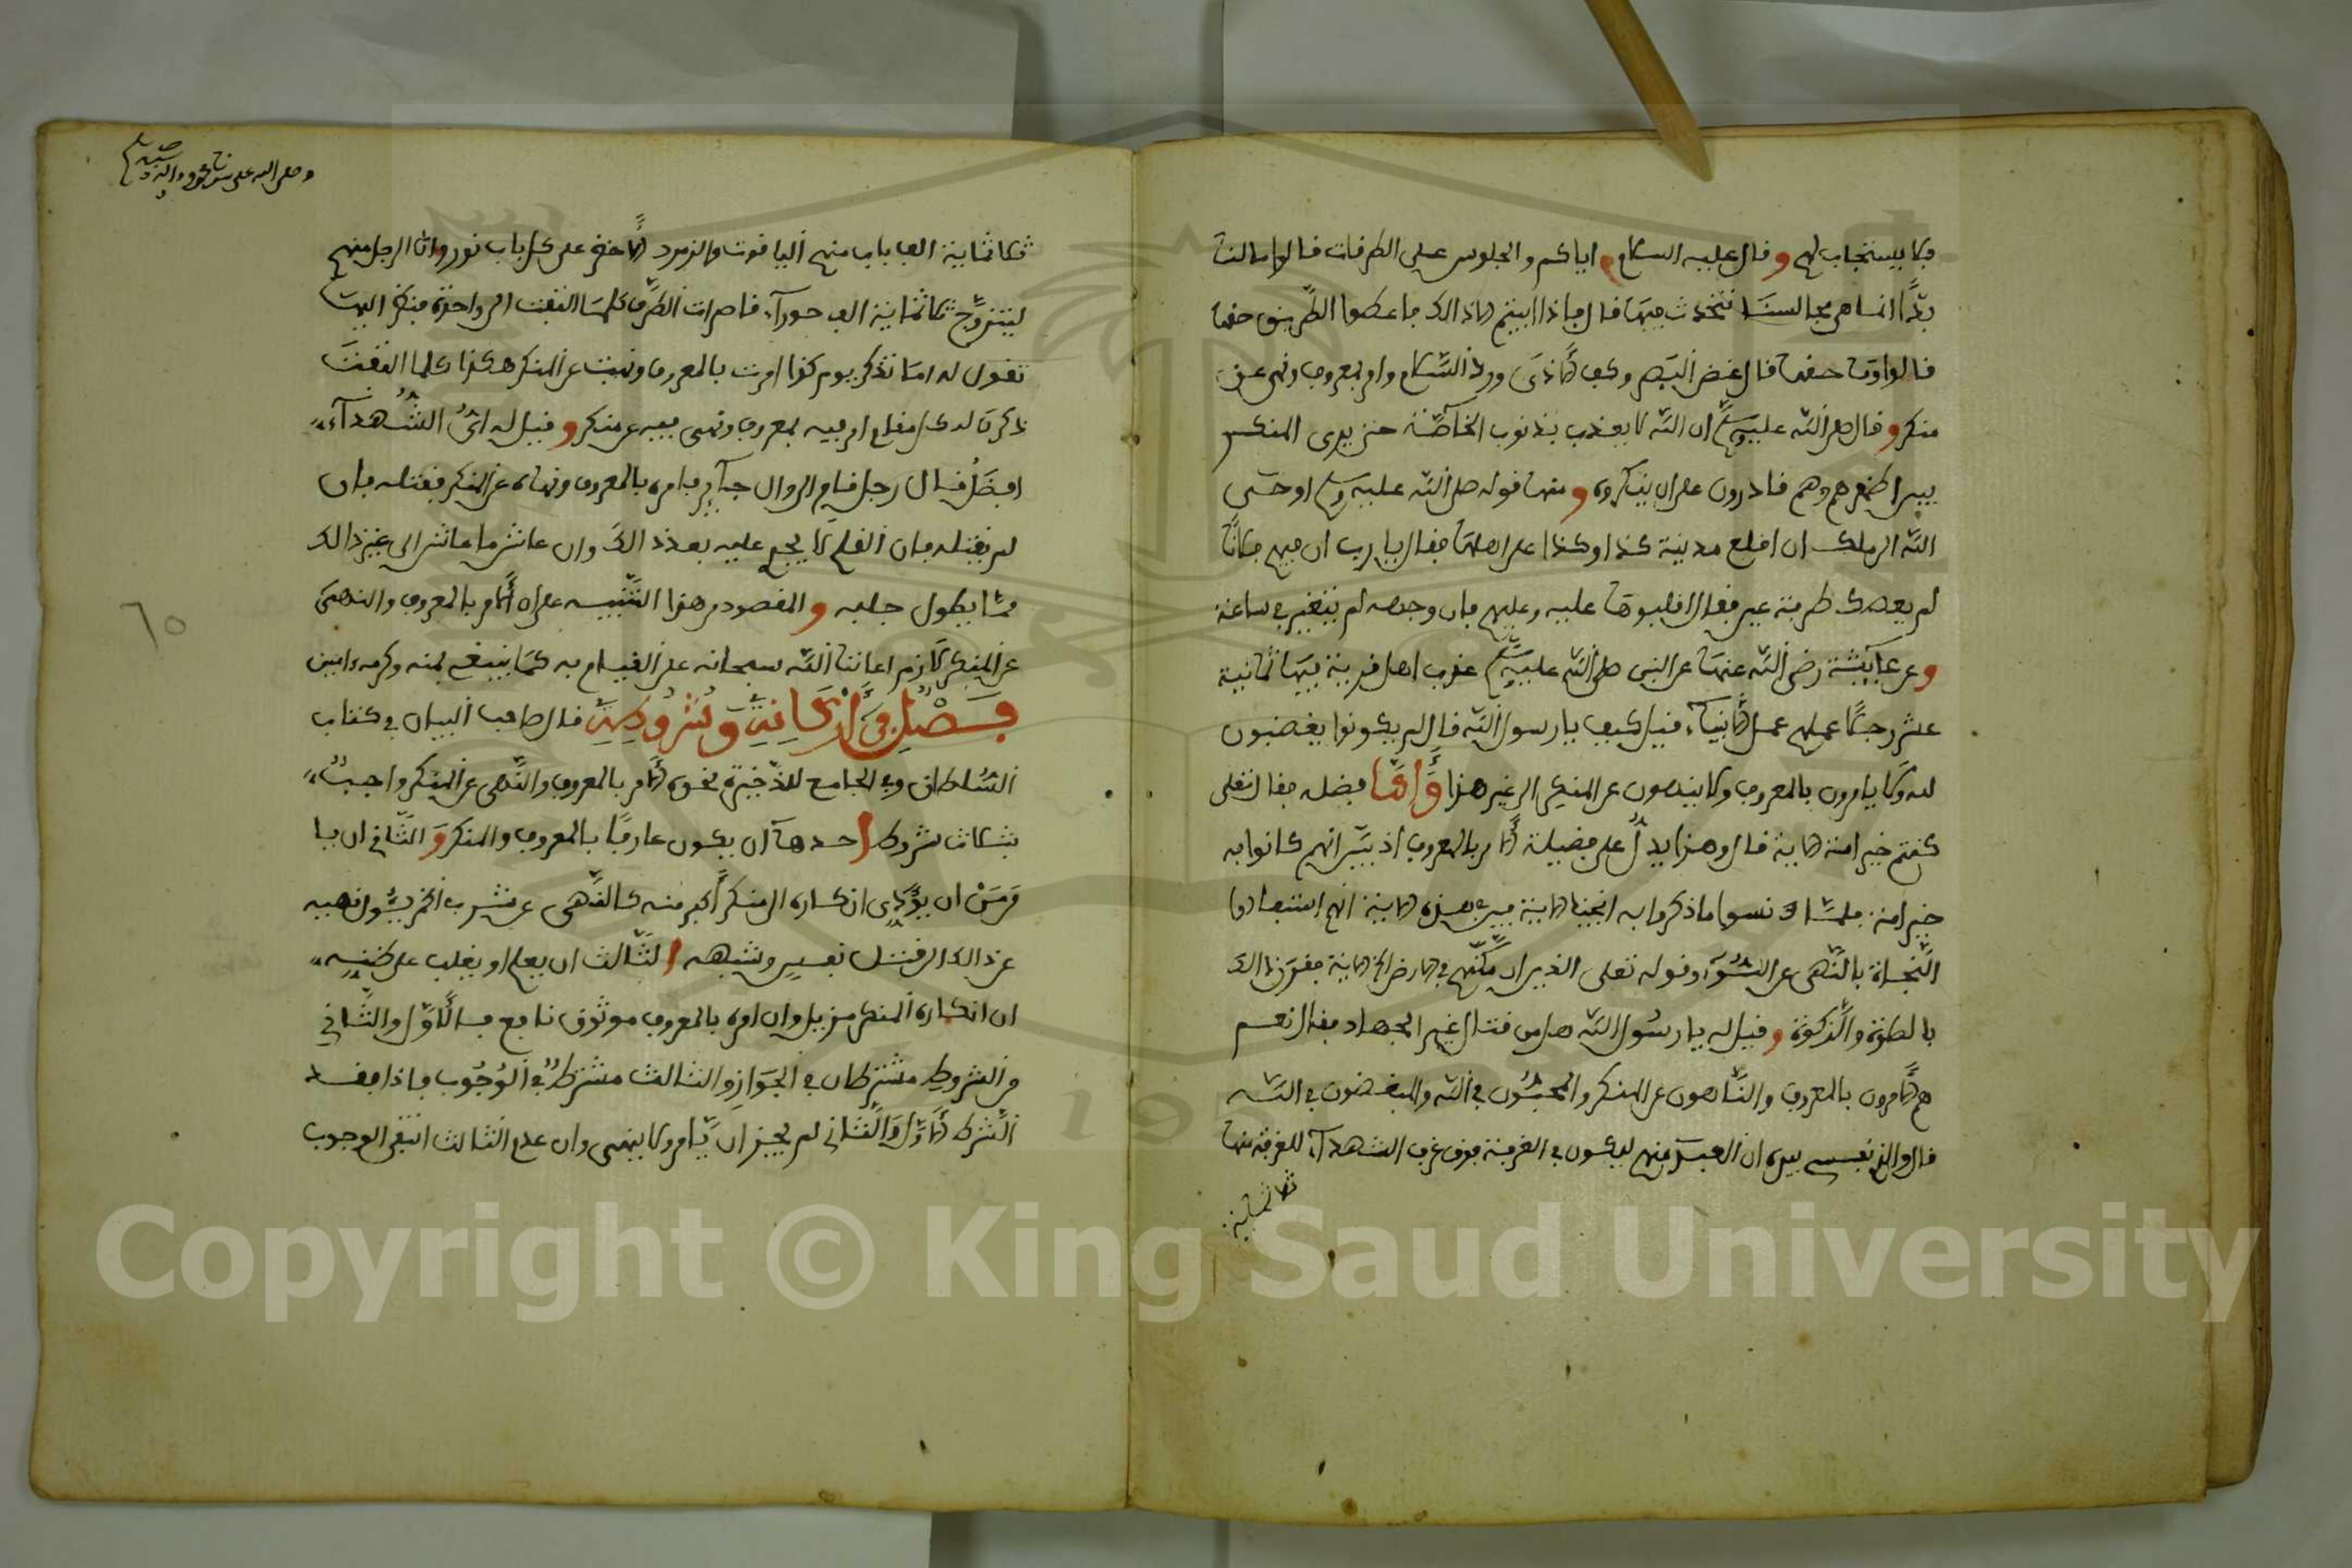 فلا يستجاب لهم وقال عليه السلام اياكم والجلوس على الطرقات قالوا مالنا
بدا انما هي مجالسنا نتحدث فيها قال فاذا ابيتم الا ذالك فاعطوا الطريق حقها
قالوا وما حقها قال غض البصر وكف الأذى ورد السلام وامر بمعروف ونهي عن
منكر وقال صلى الله عليه وسلم ان الله لا يعذب بذنوب الخاصة حتى يرى المنكر
بين اظهرهم وهم قادرون على ان ينكروه ومنها قوله صلى الله عليه وسلم اوحى
الله الى ملك ان اقلع مدينة كذا وكذا على اهلها فقال يا رب ان فيهم فلانا
لم يعصك طرفة عين فقال اقلبوها عليه وعليهم فان وجهه لم يتغير في ساعة
وعن عايشة رضي الله عنها عن النبي صلى الله عليه وسلم عذب اهل قرية فيها ثمانية
عشر رجلا عملهم عمل الأنبياء قيل كيف يا رسول الله قال لم يكونوا يغضبون
لله ولا يامرون بالمعروف ولا ينهون عن المنكر الى غير هذا وأما فضله فقال تعلى
كنتم خير امة الاية قال وهذا يدل على فضيلة الأمر بالمعروف اذ بين انهم كانوا به
خير امة فلما نسوا ما ذكروا به انجينا الاية فبين في هذه الاية انهم استفادوا
النجاة بالنهي عن السوء وقوله تعلى الذين ان مكنهم في الارض الاية فقرن ذالك
بالصلوة والزكوة وقيل له يا رسول الله هل من قتال غير الجهاد فقال نعم
هم الأمرون بالمعروف والناهون عن المنكر والمحبون في الله والمبغضون في الله
قال والذي نفسي بيده ان العبد منهم ليكون في الغرفة فوق غرف الشهداء للغرفة منها
ثلاثماية
وصلى الله على سيدنا محمد وءاله وصحبه
ثلاثماية الف باب منهم الياقوت والزمرد الأخضر على كل باب نور وان الرجل منهم
ليتزوج ثلاثماية الف حوراء قاصرات الطرف كلما التفت الى واحدة منهن اليها
تقول له اما تذكر يوم كذا امرت بالمعروف ونهيت عن المنكر هكذا كلما التفت
ذكرت له كل مقام امر فيه بمعروف ونهى فيه عن منكر وقيل له اي الشهداء
افضل قال رجل قام الى وال جاير فامره بالمعروف ونهاه عن المنكر فقتله فان
لم يقتله فان القلم لا يجري عليه بعد ذالك وان عاش ما عاش الى غير ذالك
مما يطول جلبه والمقصود من هذا التنبيه على ان الأمر بالمعروف والنهي
عن المنكر لازم اعاننا الله سبحانه على القيام به كما ينبغي بمنه وكرمه ءامين
فصل في أركانه وشروطه قال صاحب البيان في كتاب
السلطان وفي الجامع للذخيرة نحوه الأمر بالمعروف والنهي عن المنكر واجب
بثلاث شروط احدها ان يكون عارفا بالمعروف والمنكر والثاني ان يا
من ان يؤدي انكاره الى منكر أكبر منه كالنهي عن شرب الخمر فيئول نهيه
عن ذالك الى قتل نفس وشبهه الثالث ان يعلم او يغلب على ظنه
ان انكاره المنكر مزيل وان امره بالمعروف موثوق نافع فالأول والثاني
من الشروط مشترطان في الجواز والثالث مشترط في الوجوب فاذا فقد
الشرط الأول والثاني لم يجز ان يامر ولا ينهى وان عدم الثالث انتفى الوجوب
٦٥
Copyright © King Saud University